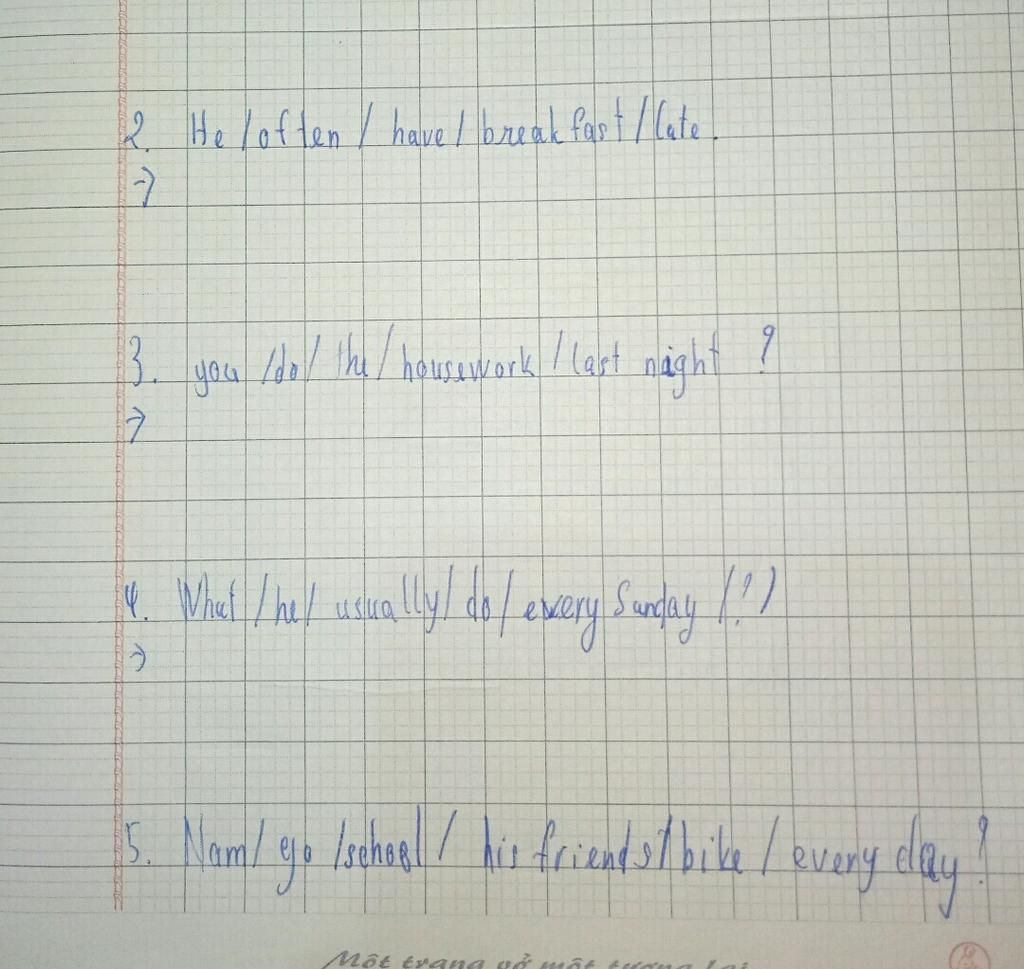 2. He / often / have / breakfast / late.
→
3. you / do / the / housework / last night ?
→
4. What / he / usually / do / every Sunday (?)
→
5. Nam / go / school / his friends / bike / every day ?
Một trang vở một tương lai